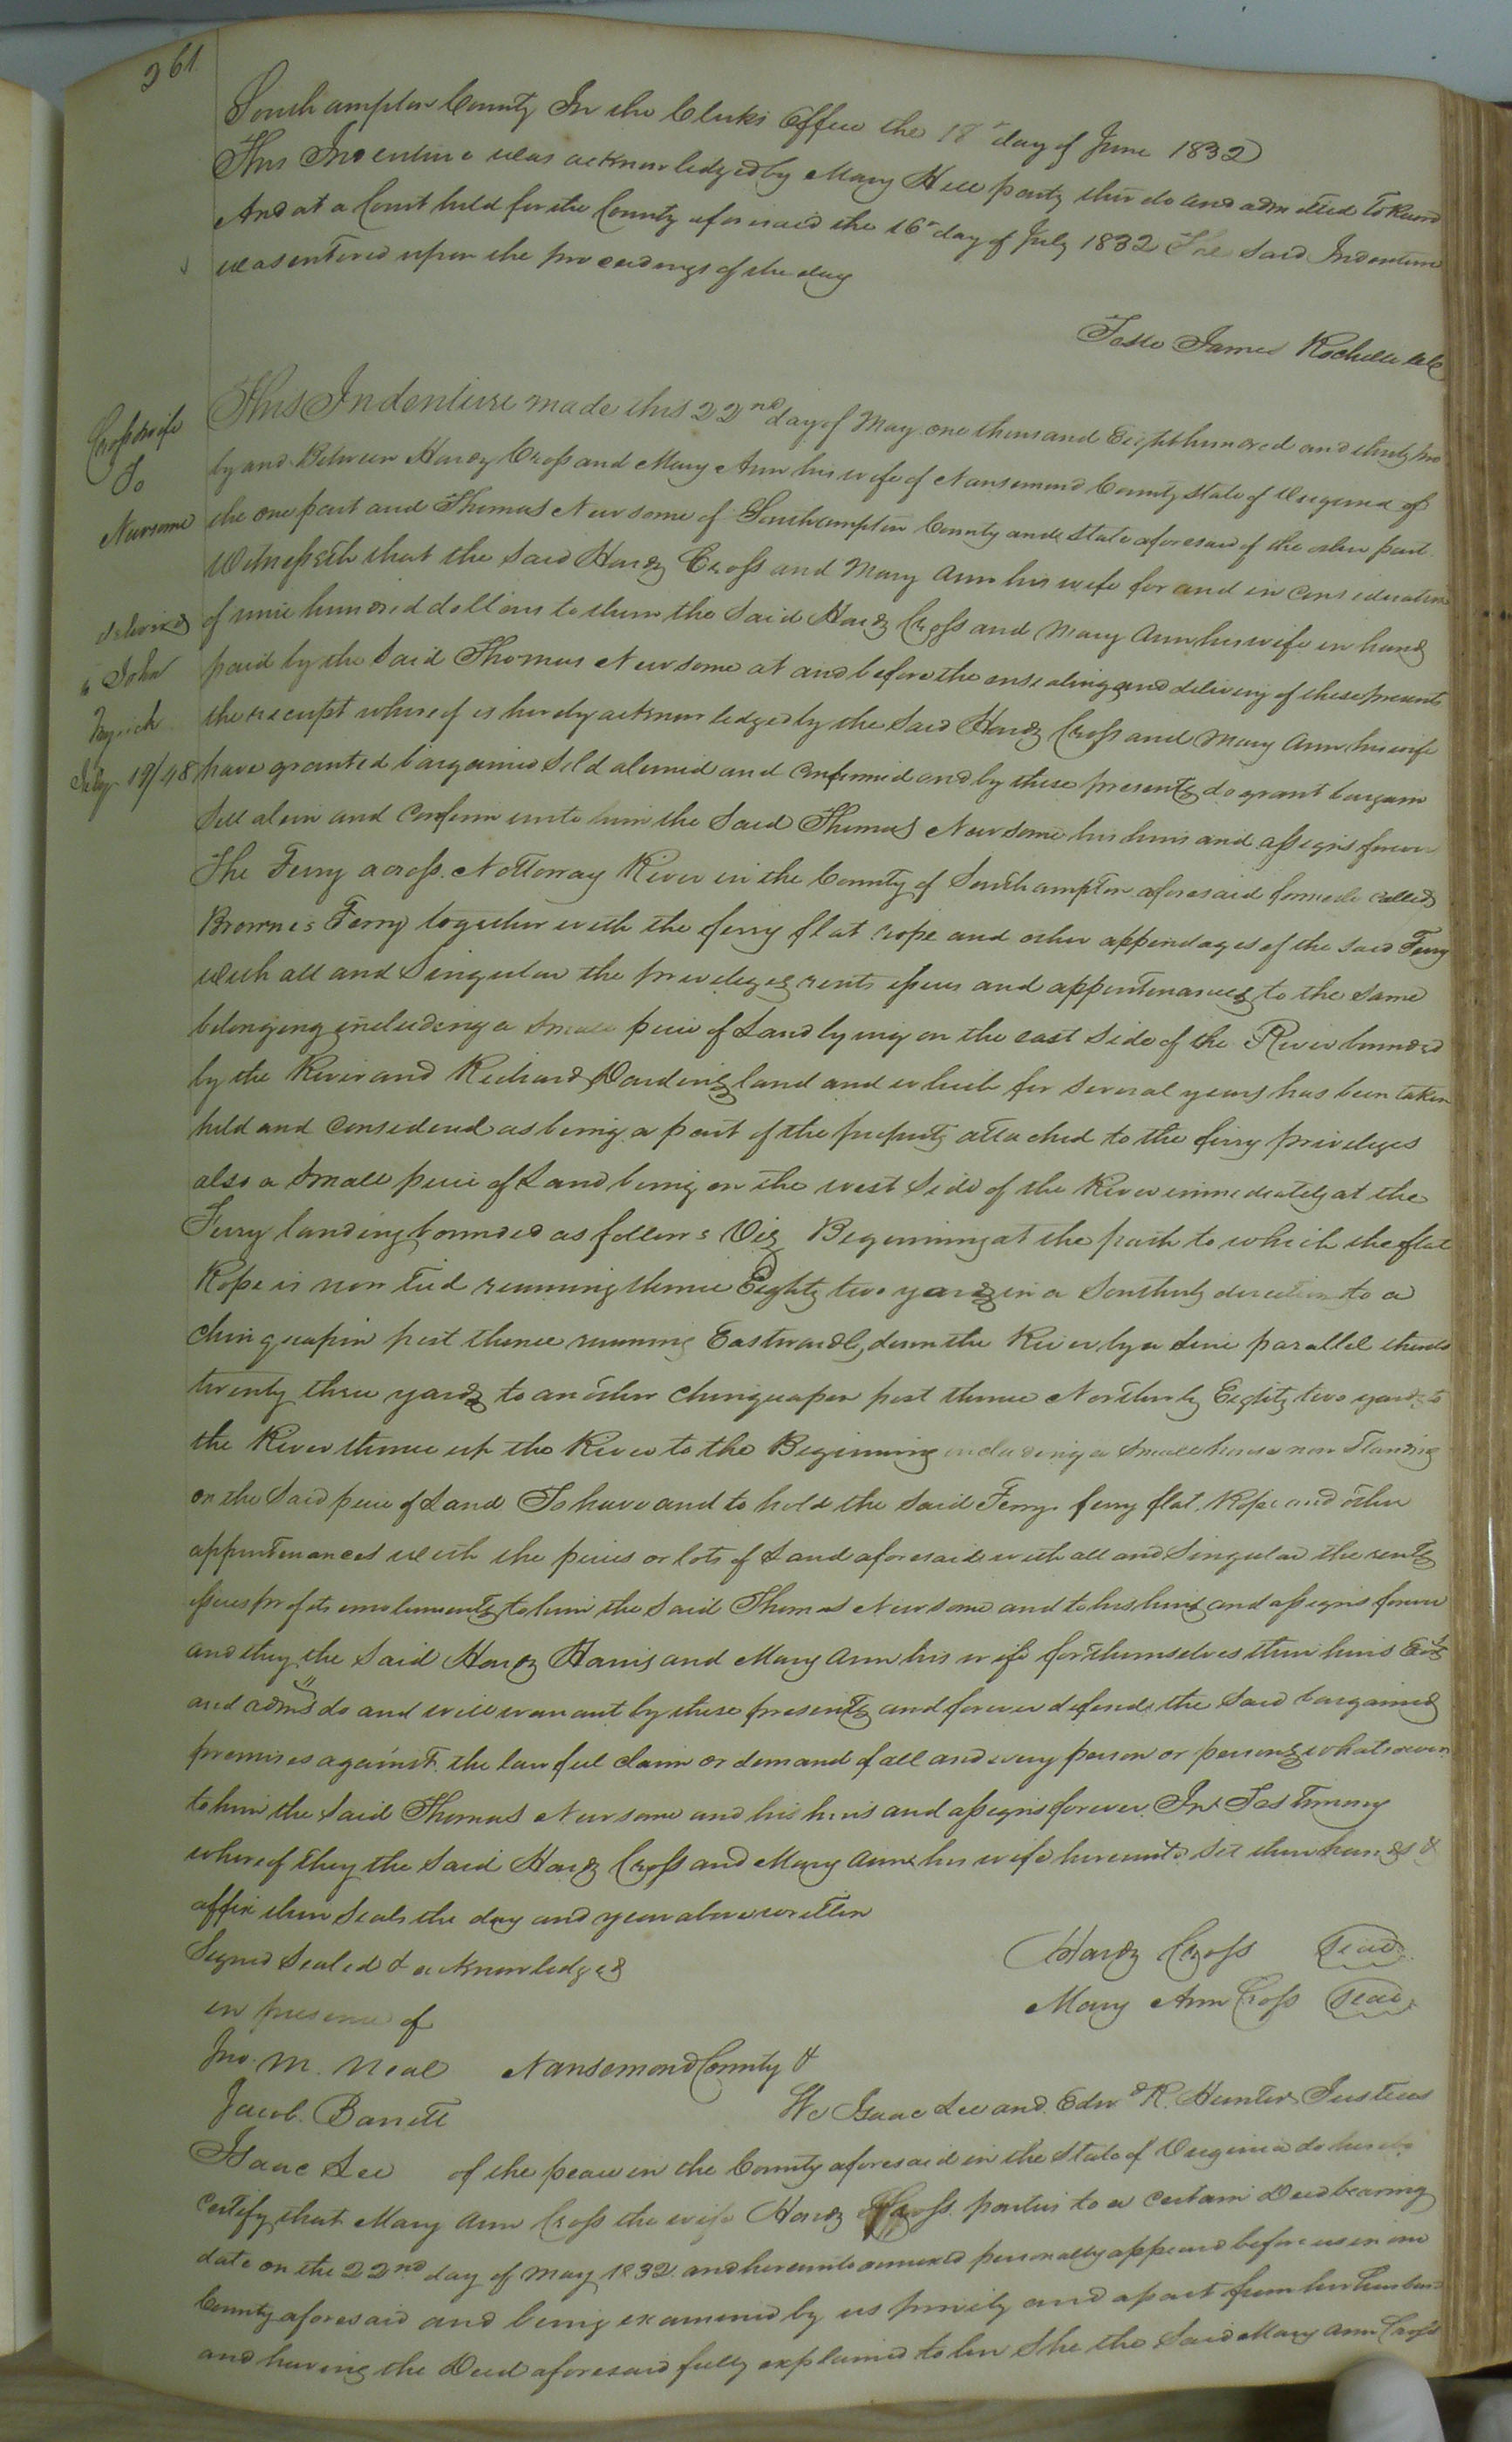 261
Southampton County In the Clerks Office the 18th day of June 1832
This Indenture was acknowledged by Mary Hill party thereto and admitted to Record
And at a Court held for the County aforesaid the 16th day of July 1832 The said Indenture
was entered upon the proceedings of the day
Teste James Rochelle clk
Cross & wife
To
Newsome
delivered
to John
July 19/48
This Indenture made this 22nd day of May one thousand Eight hundred and thirty two
by and Between Hardy Cross and Mary Ann his wife of Nansemond County State of Virginia of
the one part and Thomas Newsome of Southampton County and State aforesaid of the other part
Witnesseth that the said Hardy Cross and Mary Ann his wife for and in consideration
of nine hundred dollars to them the said Hardy Cross and Mary Ann his wife in hand
paid by the said Thomas Newsome at and before the ensealing and delivery of these presents
the receipt whereof is hereby acknowledged by the said Hardy Cross and Mary Ann his wife
have granted bargained sold aliened and confirmed and by these presents do grant bargain
sell alien and confirm unto him the said Thomas Newsome his heirs and assigns forever
The Ferry across Nottoway River in the County of Southampton aforesaid formerly called
Brown's Ferry together with the ferry flat rope and other appendages of the said Ferry
with all and singular the privileges rents issues and appurtenances to the same
belonging including a small piece of Land lying on the east side of the River bounded
by the River and Richard Dardens land and which for several years has been taken
held and considered as being a part of the property attached to the ferry privileges
also a small piece of Land being on the west side of the River immediately at the
Ferry landing bounded as follows Viz Beginning at the path to which the flat
Rope is now tied running thence Eighty two yards in a Southerly direction to a
chinquapin post thence running Eastwardly down the River by a line parallel thereto
twenty three yards to another chinquapen post thence Northerly Eighty two yards to
the River thence up the River to the Beginning including a small house now standing
on the said piece of Land To have and to hold the said Ferry ferry flat Rope and other
appurtenances with the pieces or lots of Land aforesaid with all and singular the rents
issues profits emoluments to him the said Thomas Newsome and to his heirs and assigns forever
and they the said Hardy Harris and Mary Ann his wife for themselves their heirs Exrs
and admrs do and will warrant by these presents and forever defend the said bargained
premises against the lawful claim or demand of all and every person or persons whatsoever
to him the said Thomas Newsome and his heirs and assigns forever. In Testimony
whereof they the said Hardy Cross and Mary Ann his wife hereunto set their hands &
affix their seals the day and year above written
Signed Sealed & acknowledged
in presence of
Hardy Cross Seal
Mary Ann Cross Seal
Jno. M. Neal
Jacob Barrett
Isaac Lee
Nansemond County &
We Isaac Lee and Edwd R. Hunter Justices
of the peace in the County aforesaid in the State of Virginia do hereby
certify that Mary Ann Cross the wife Hardy Cross parties to a certain Deed bearing
date on the 22nd day of May 1832 and hereunto annexed personally appeared before us in our
County aforesaid and being examined by us privily and apart from her husband
and having the Deed aforesaid fully explained to her She the said Mary Ann Cross